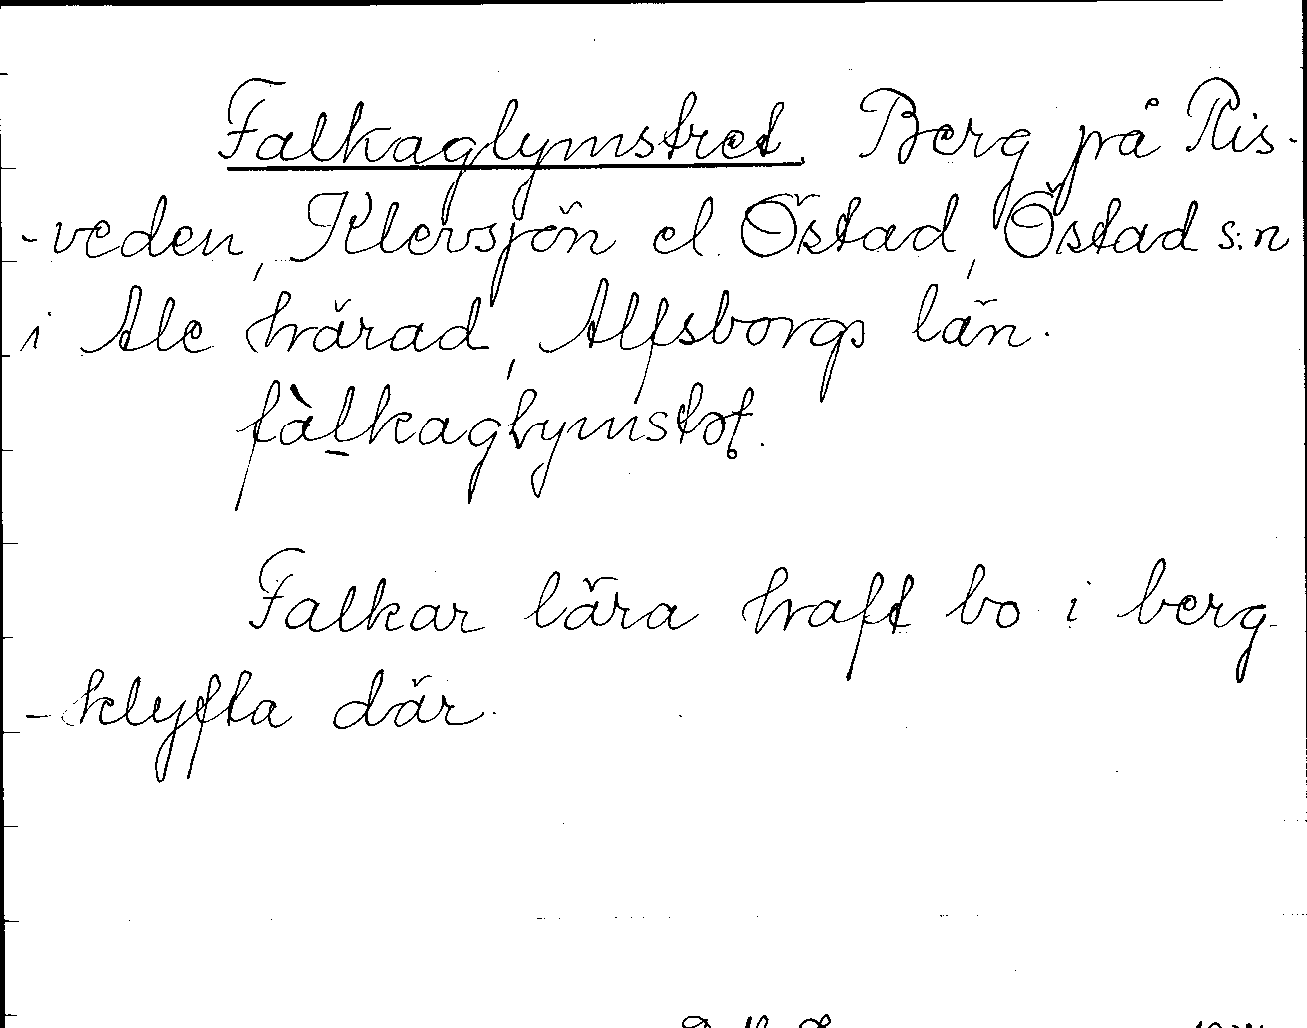 Falkaglymstret. Berg på Ris-
-veden, Klevsjön el. Östad, Östad s:n
i Ale härad, Alfsborgs län.
fàlkaglymstət.
Falkar lära haft bo i berg-
-klyfta där.